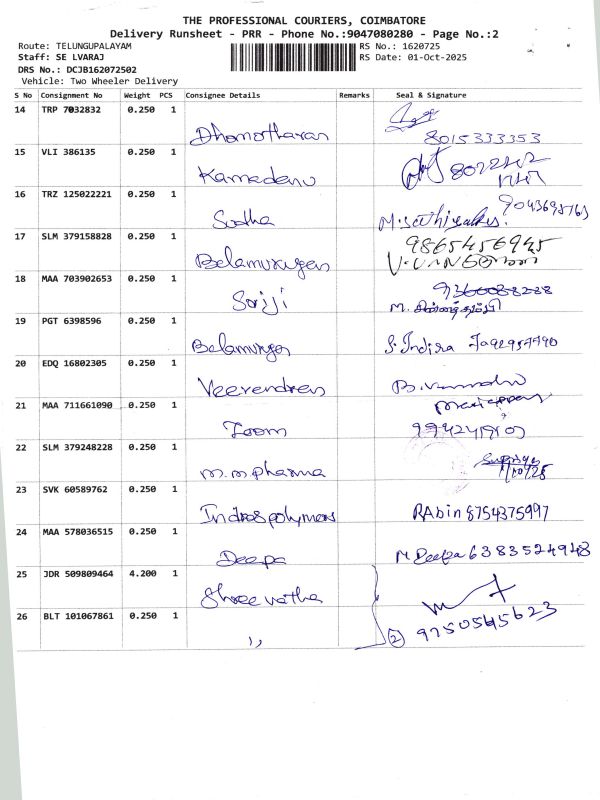 THE PROFESSIONAL COURIERS, COIMBATORE
Delivery Runsheet - PRR - Phone No.:9047080280 - Page No.:2
Route: TELUNGUPALAYAM RS No.: 1620725
Staff: SE LVARAJ RS Date: 01-Oct-2025
DRS No.: DCJB162072502
Vehicle: Two Wheeler Delivery
S No Consignment No Weight PCS Consignee Details Remarks Seal & Signature
14 TRP 7032832 0.250 1
Dhamotharan 8015333353
15 VLI 386135 0.250 1
Kamadenu
16 TRZ 125022221 0.250 1
Sudha 9043695763
17 SLM 379158828 0.250 1 9865456945
Balamurugan
18 MAA 703902653 0.250 1
Soriji M.
19 PGT 6398596 0.250 1
Balamurgan S. Indira
20 EDQ 16802305 0.250 1
Veerendren
21 MAA 711661090 0.250 1 Mariappan
Zoom
22 SLM 379248228 0.250 1
m.m pharma
23 SVK 60589762 0.250 1
Indros polymers RAbin 8754375997
24 MAA 578036515 0.250 1
Deepa M Deepa 6383524948
25 JDR 509809464 4.200 1
Shree vatha
26 BLT 101067861 0.250 1
,, 2 9750545623